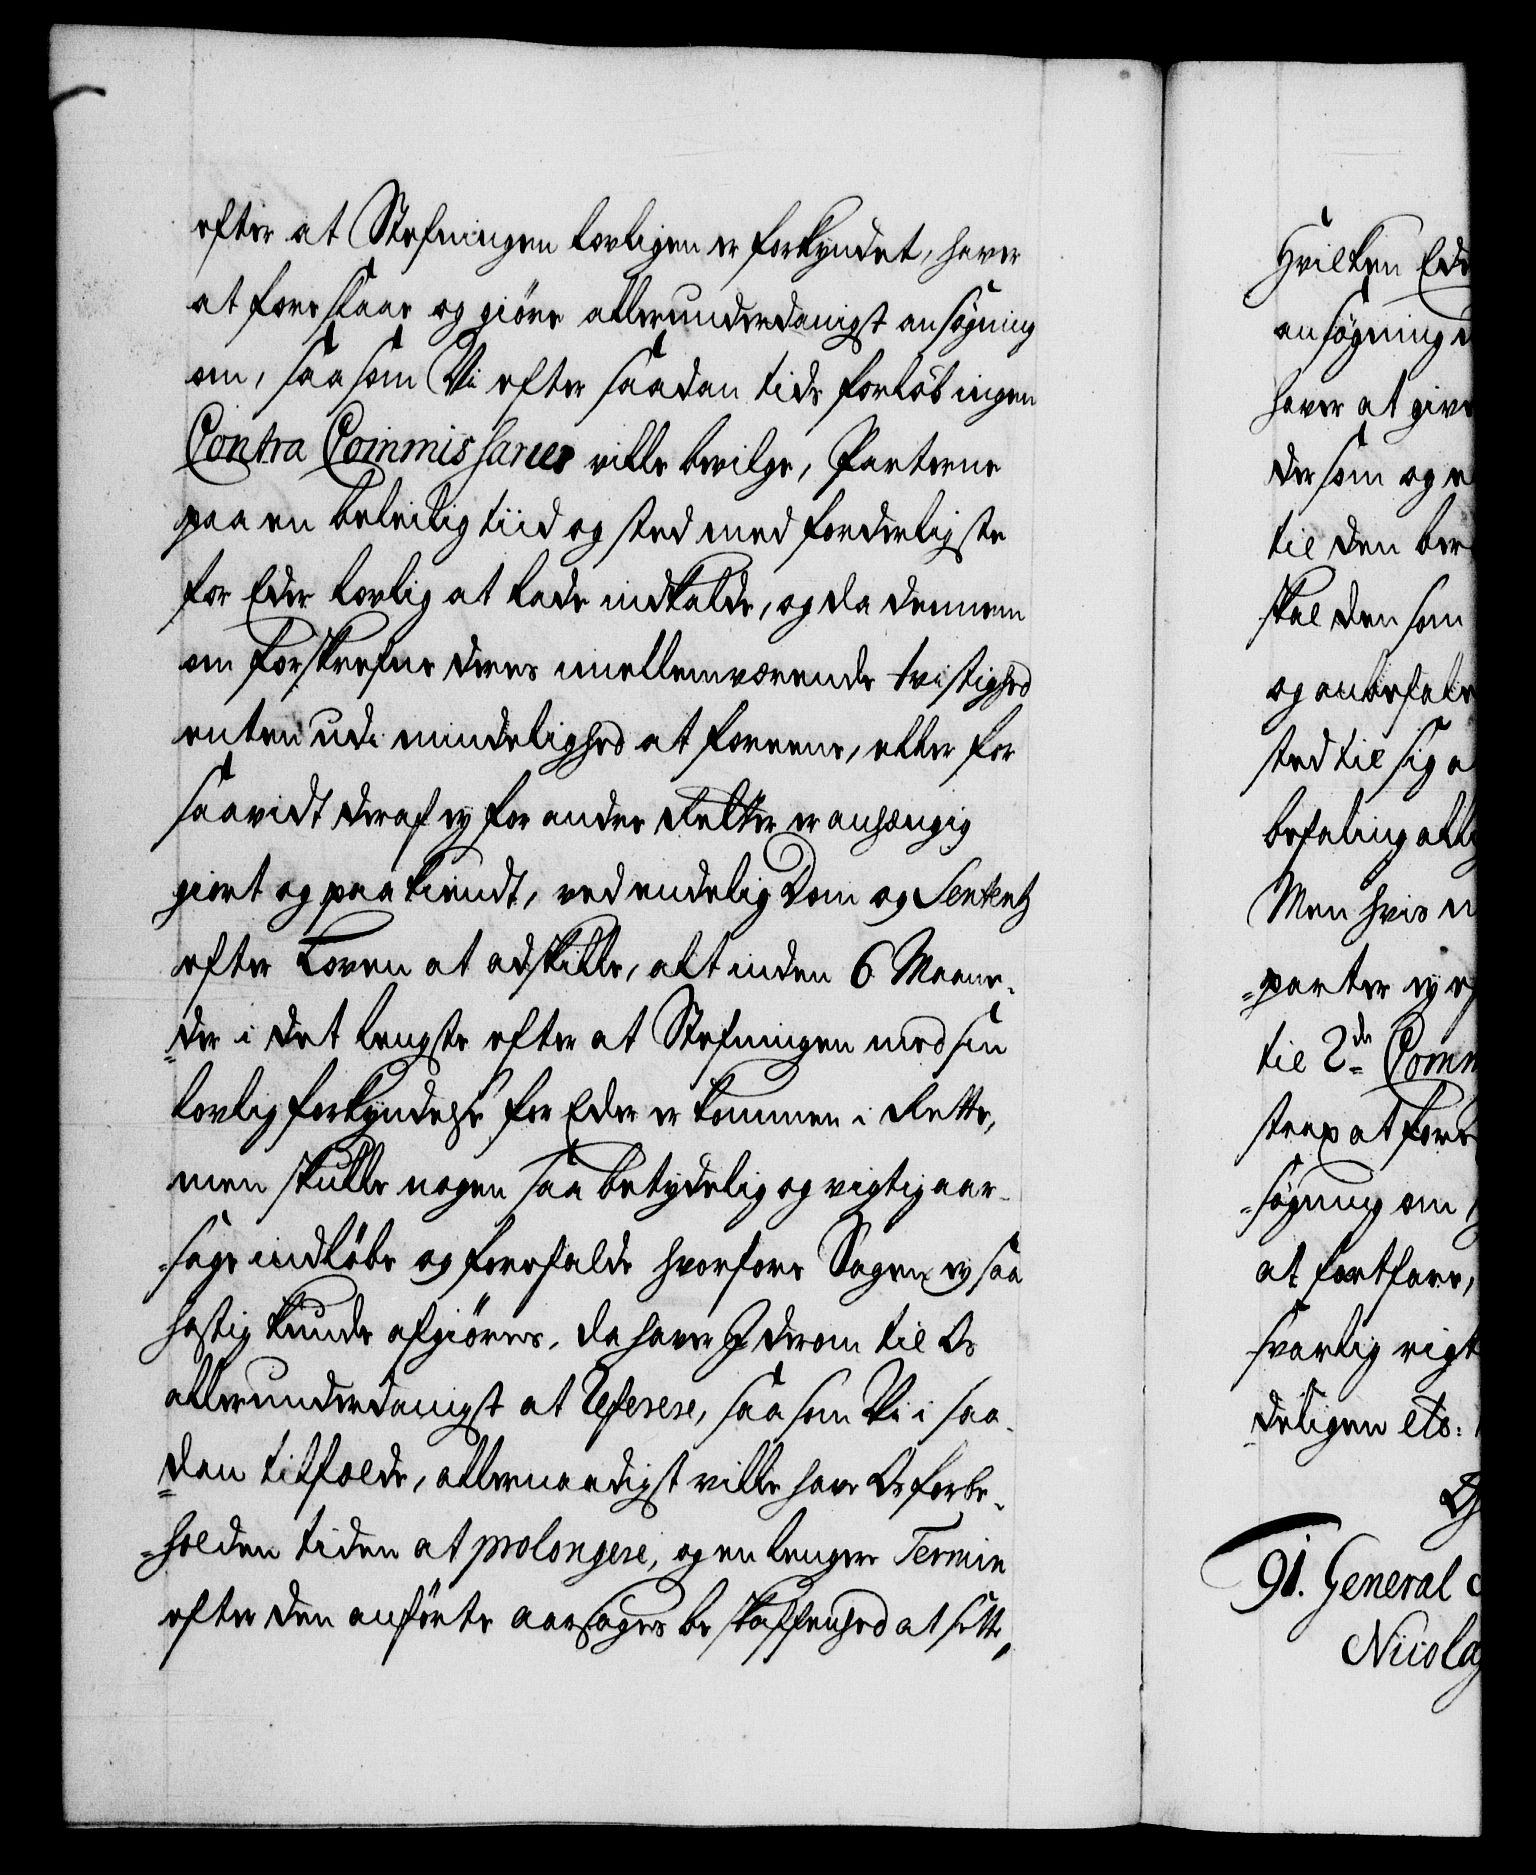 efter at Stefningen lovligen er forkyndet, haver
at foreslaae og giöre allerunderdanigst ansögning
om, saasom Vi efter saadan tids forlöb ingen
Contra Commissarier ville bevilge, Parterne
paa en beleilig tiid og sted med forderligste
for Eder lovlig at lade indkalde, og da dennem
om forskrefne deres imellemværende tvistighed
enten udi mindelighed at foreene, eller for
saavidt deraf ey for andre Retter er anhængig
giort og paakiendt, ved endelig Dom og Sententz
efter Loven at adskille, alt inden 6 Maane-
der i det lengste efter at Stefningen med sin
lovlig forkyndelse for Eder er kommen i Rette,
men skulle nogen saa betydelig og vigtig aar-
sage indlöbe og forefalde hvorfore Sagen ey saa
hastig kunde afgiöres, da haver I derom til Os
allerunderdanigst at Referere, saasom Vi i saa-
dan tilfælde, allernaadigst ville have Os forbe-
holden tiden at prolongere, og en lengere Termin
efter den anförte aarsages beskaffenhed at sette,
Hvilken
ansögning
haver at give
dersom og
til den
skal den som
og anbefale
sted til sig
befaling
Men hvis
parter ey
til 2de
strax at
søgning om
at fortfare,
svarlig
deligen etc:
91. General
Nicolay